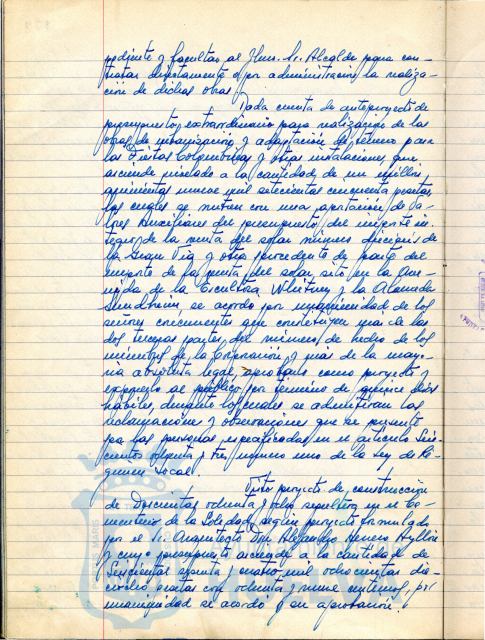 pediente y facultar al Ilmo. Sr. Alcalde para con-
tratar directamente o por administracion la realiza-
ción de dichas obras.
Dada cuenta de anteproyecto de
presupuesto extraordinario para realizacion de las
obras de urbanización y adaptación de terreno para
las Fiestas Colombinas y otras instalaciones, que
asciende nivelado a la cantidad de un millon
quinientas nueve mil setecientas cincuenta pesetas,
los cuales se nutren con una aportación de Va-
lores Auxiliares del presupuesto, del importe in-
tegro de la venta del solar numero dieciseis de
la Gran Via y otro procedente de parte del
importe de la venta del solar sito en la Ave-
nida de la Escultora Whitney y la Alameda
Sundheim, se acordo por unanimidad de los
señores concurrentes que constituyen más de las
dos terceras partes del número de hecho de los
miembros de la Corporación y más de la mayo-
ria absoluta legal, aprobarlo como proyecto y
exponerlo al público por término de quince dias
hábiles, durante los cuales se admitiran las
reclamaciones y observaciones que se presente
por las personas especificadas en el articulo Seis-
cientos ochenta y tres número uno de la Ley de Ré-
gimen Local.
Visto proyecto de construcción
de Doscientas ochenta y ocho sepulturas en el Ce-
menterio de la Soledad, según proyecto formulado
por el Sr. Arquitecto Don Alejandro Herrero Ayllón
y cuyo presupuesto asciende a la cantidad de
Seiscientas y cuatro mil ochocientas die-
ciocho pesetas con ochenta y nueve centimos, por
unanimidad se acordó su aprobación.